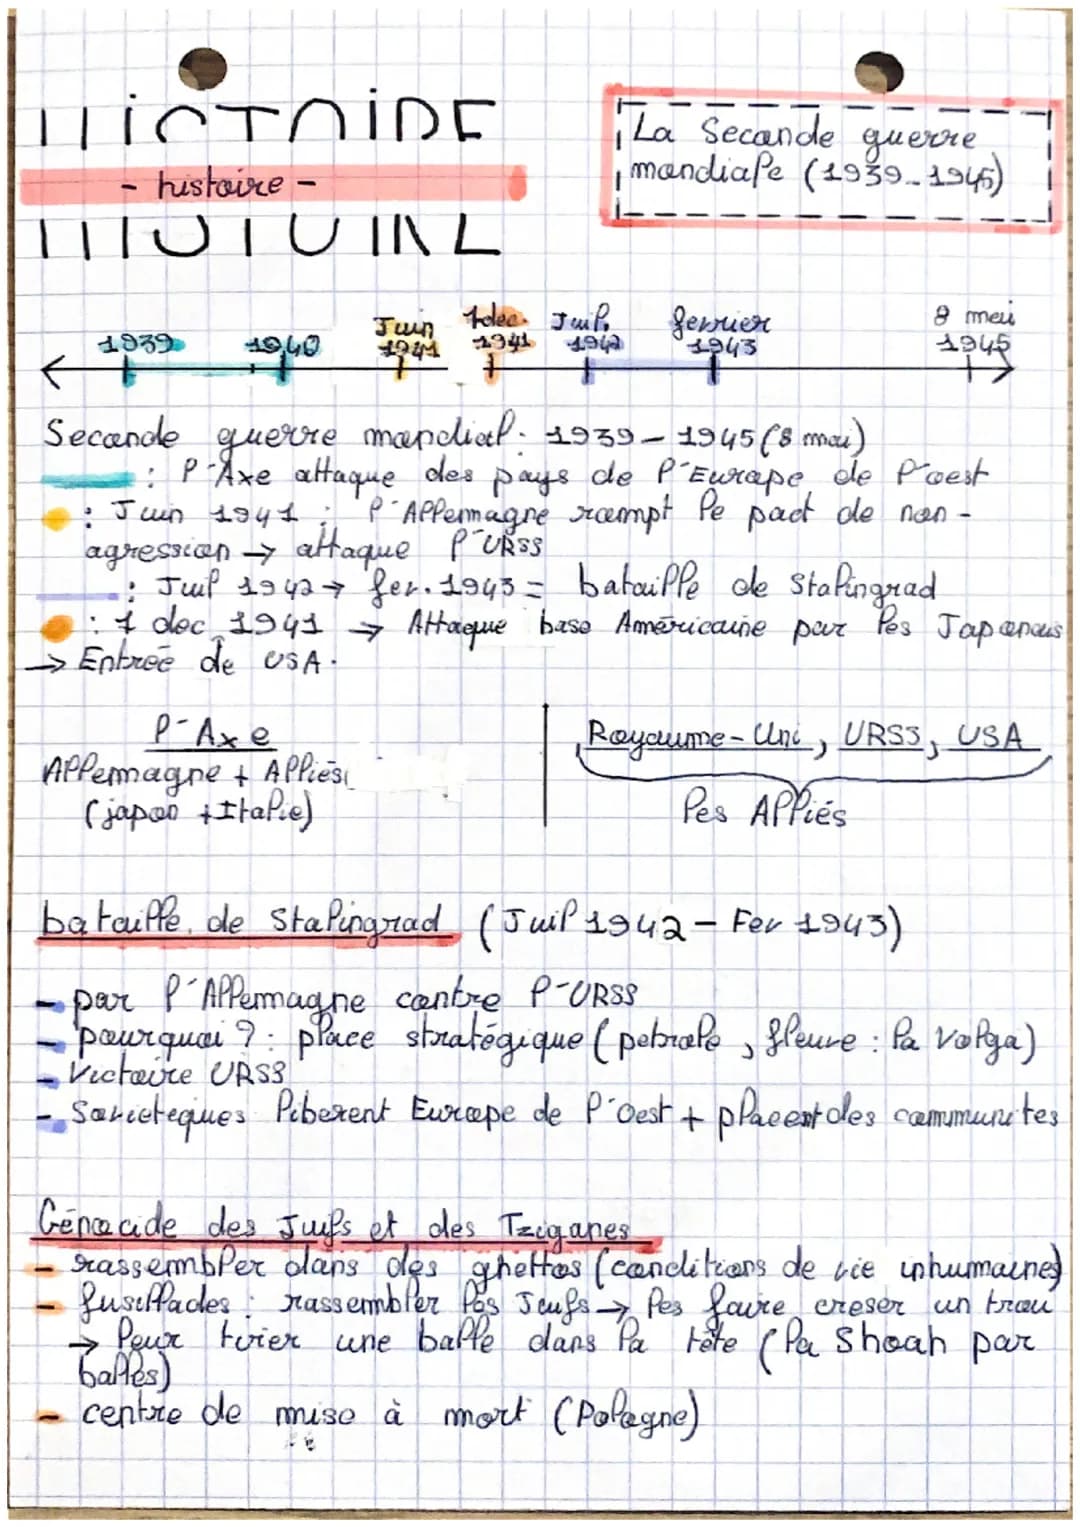 HISTOIRE
- histoire -
HISTOIRE
La Seconde guerre
mondiale (1939-1945)
1939 1940 Juin 1941 7 dec. 1941 Juil. 1942 fevrier 1943 8 mai 1945
Seconde guerre mondial. 1939 - 1945 (8 mai)
: l'Axe attaque des pays de l'Europe de l'oest
: Juin 1941 : l'Allemagne rompt le pact de non-
agression → attaque l'URSS
: Juil 1942 → fev. 1943 = bataille de Stalingrad
: 7 dec 1941 → Attaque base Américaine par les Japonais
→ Entrée de USA.
l'Axe
Allemagne + Alliés
(japon + Italie)
Royaume-Uni, URSS, USA
les Alliés
bataille de Stalingrad (Juil 1942 - Fev 1943)
- par l'Allemagne contre l'URSS
- pourquoi ? : place stratégique (petrole, fleuve : la Volga)
- Victoire URSS
- Sovieteques liberent Europe de l'Oest + placent des communites
Génocide des Juifs et des Tziganes
- rassembler dans des ghettos (conditions de vie inhumaines)
- fusillades : rassembler les Juifs → les faire creser un trou
→ leur tirer une balle dans la tête (la Shoah par
balles)
- centre de mise à mort (Pologne)